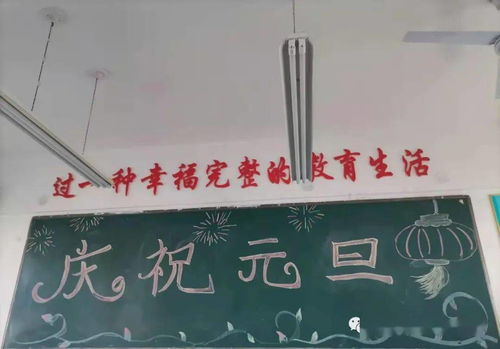 过一种幸福完整的教育生活
庆祝元旦